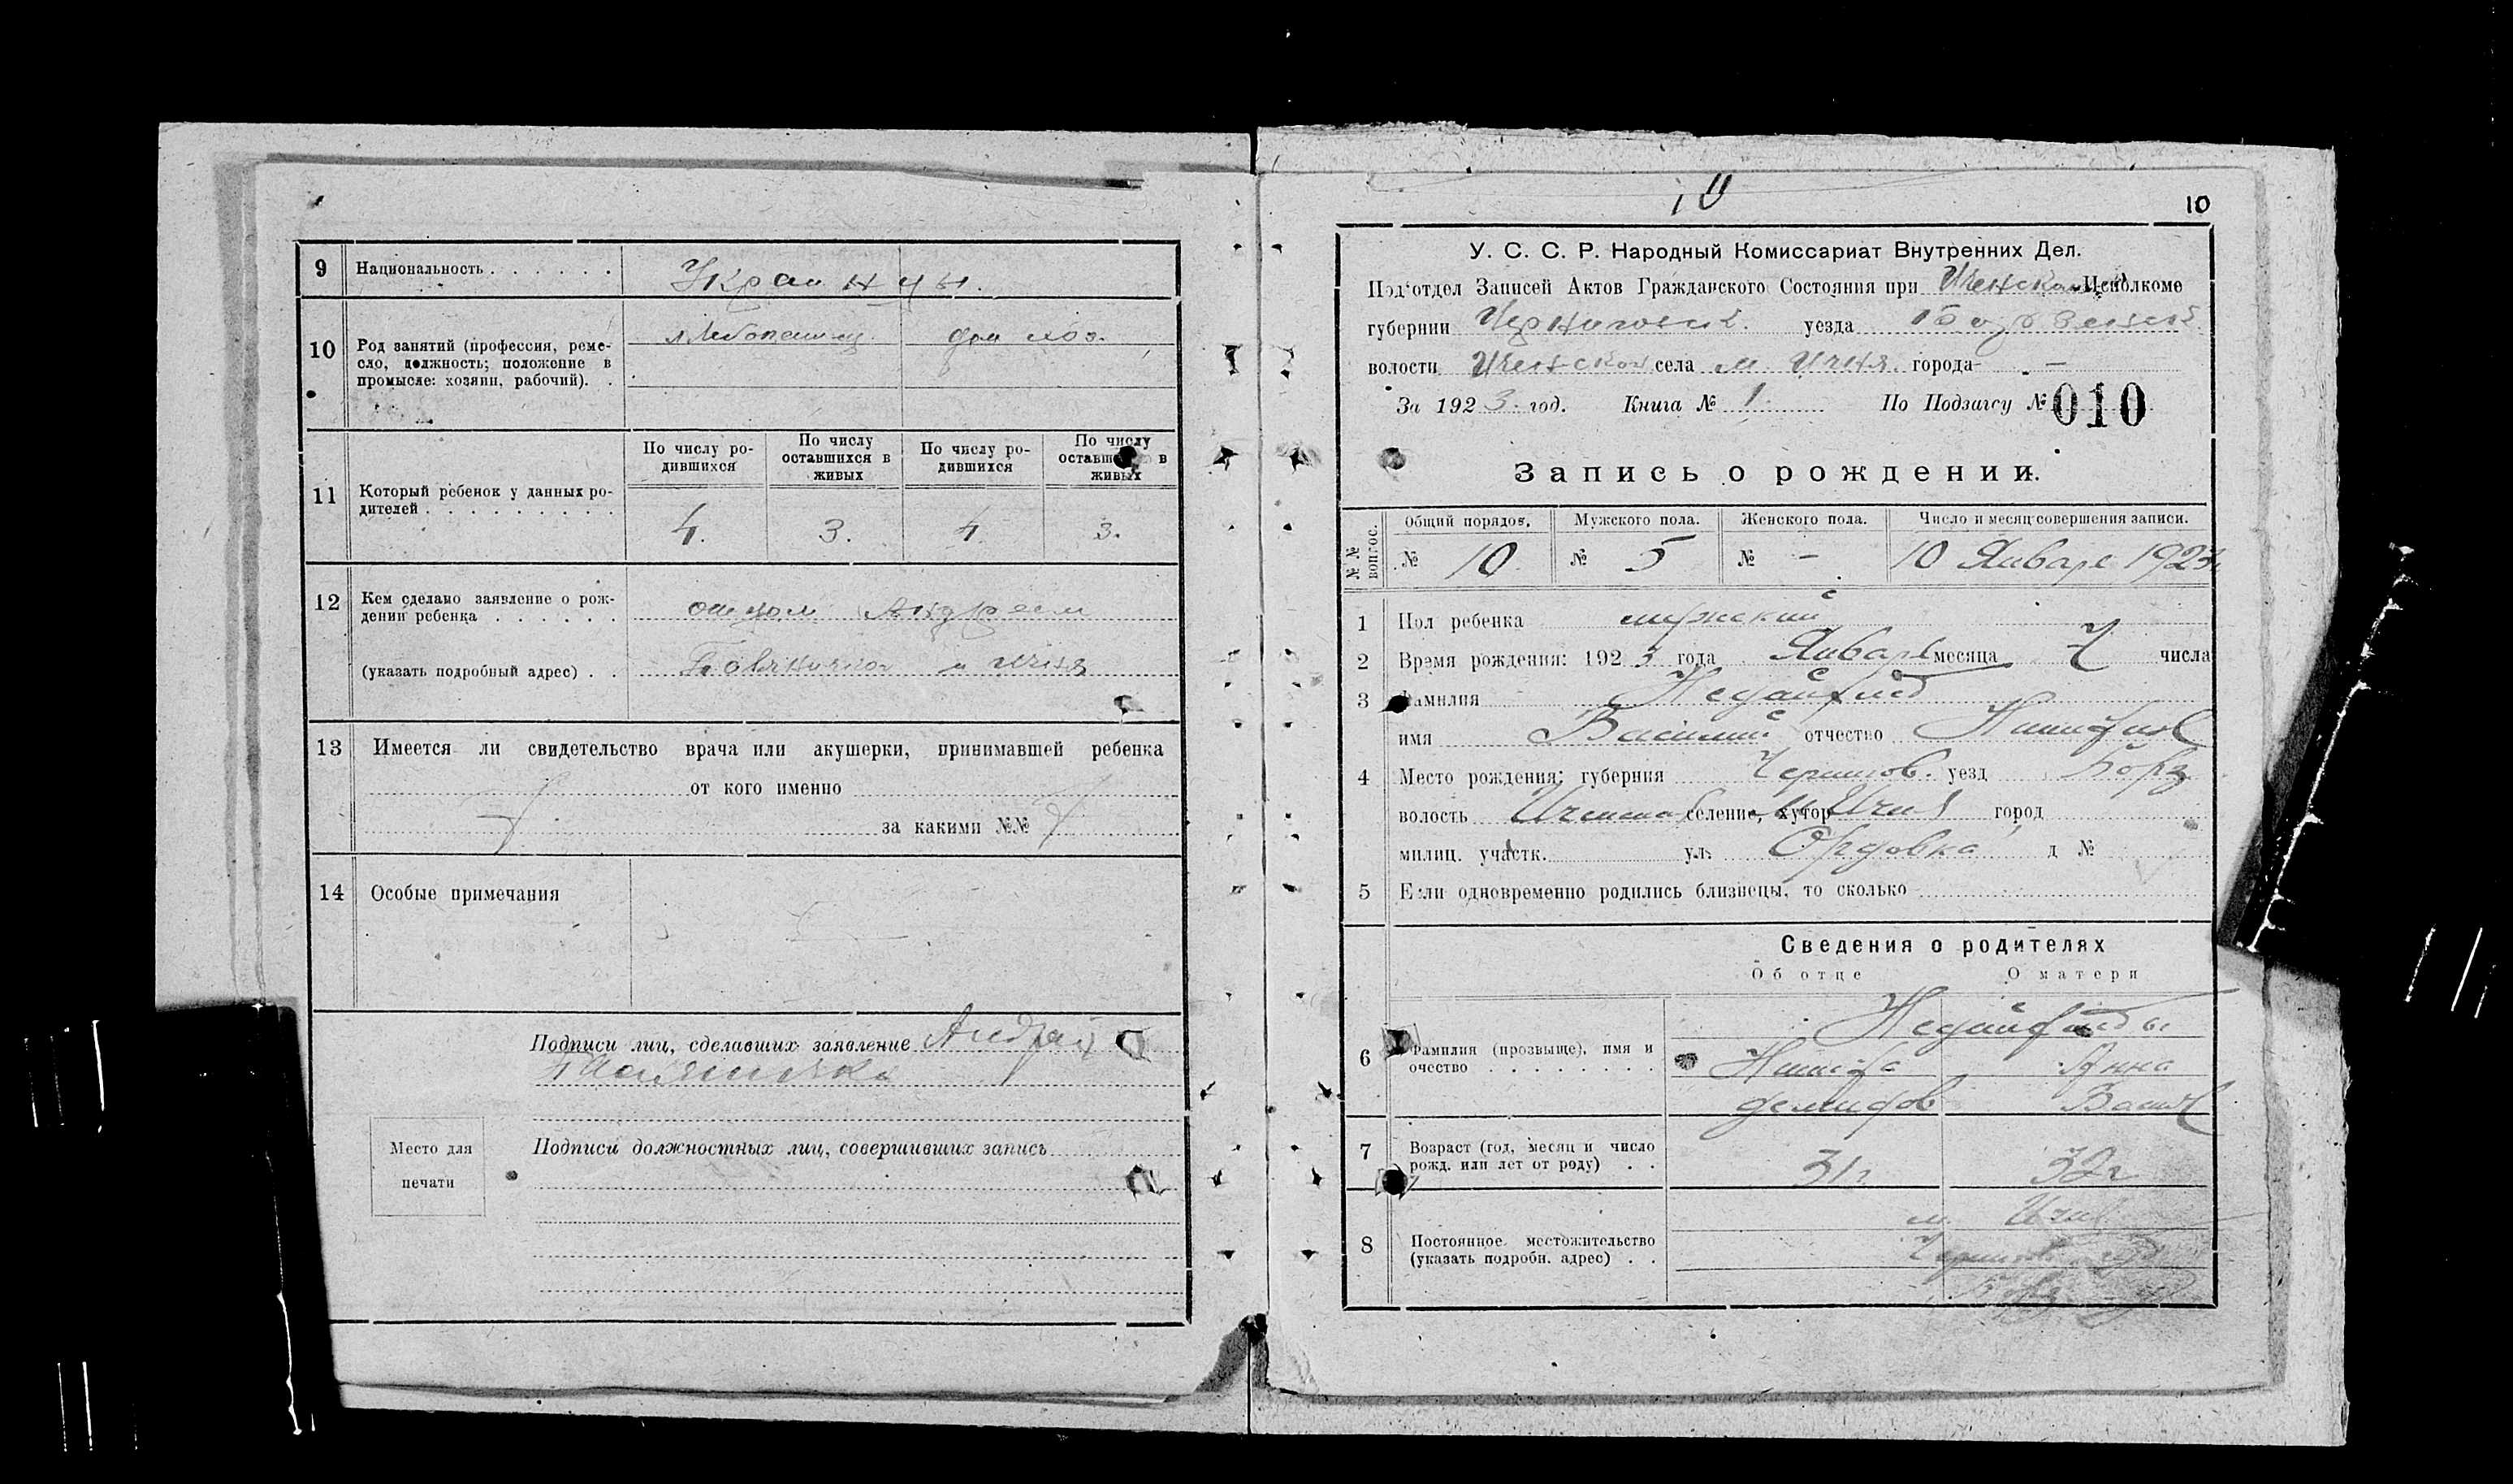 9 Национальность . . . . . . Украинцы.
10 Род занятий (профессия, реме-
сло, должность; положение в
промысле: хозяин, рабочий). .
хлебопашец. дом хоз.
11 Который ребенок у данных ро-
дителей . . . . . . . . .
По числу ро-
дившихся
По числу
оставшихся в
живых
По числу ро-
дившихся
По числу
оставш в
живых
4. 3. 4. 3.
12 Кем сделано заявление о рож-
дении ребенка . . . . . . отцом Андреем
(указать подробный адрес) . . м Ичня
13 Имеется ли свидетельство врача или акушерки, принимавшей ребенка
от кого именно
за какими №№
14 Особые примечания
Подписи лиц, сделавших заявление Андрей
Место для
печати
Подписи должностных лиц, совершивших запись
10
10
У. С. С. Р. Народный Комиссариат Внутренних Дел.
Под‘отдел Записей Актов Гражданского Состояния при Иченском Исполкоме
губернии Черниговской. уезда Борзенской
волости Иченской села м. Ичня. города -
За 1923. год. Книга № 1. По Подзагсу № 010
Запись о рождении.
№№ вопрос.
Общий порядов. Мужского пола. Женского пола. Число и месяц совершения записи.
№ 10. № 5 № - 10 Января 1923
1 Пол ребенка мужский
2 Время рождения: 1923 года Января месяца 7 числа
3 Фамилия
имя Василий отчество
4 Место рождения: губерния Чернигов. уезд Борз
волость селение, хутор м Ичня город
милиц. участк. ул. д №
5 Если одновременно родились близнецы, то сколько
Сведения о родителях
Об отце О матери
6 Фамилия (прозвыще), имя и
очество . . . . . . . .
Анна
7 Возраст (год, месяц и число
рожд. или лет от роду) . .
31г 32г
8 Постоянное местожительство
(указать подробн. адрес) . .
м. Ичня